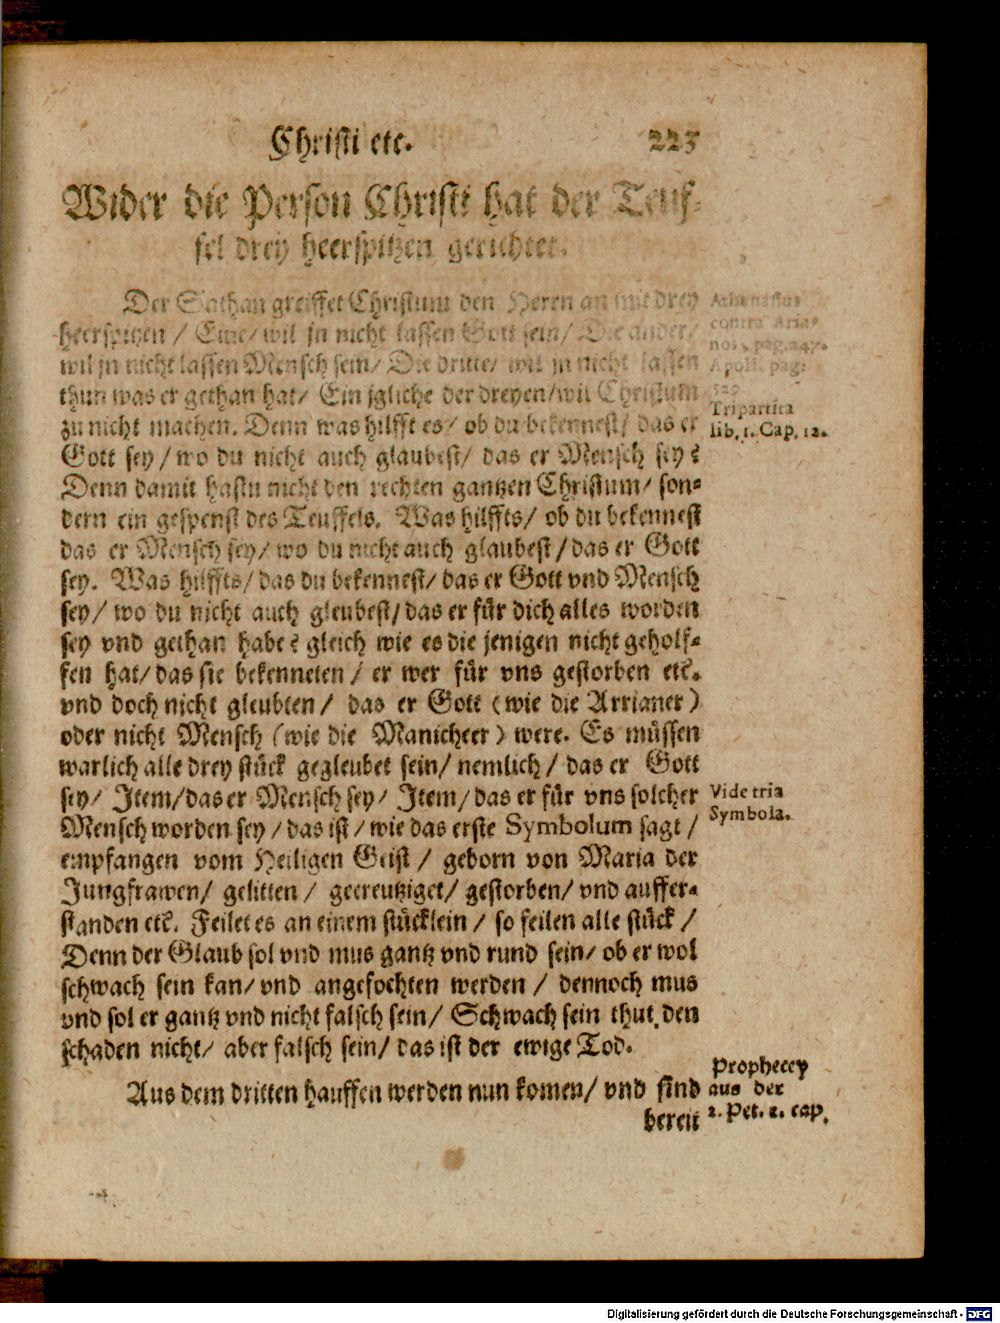 Christi etc. 223
Wider die Person Christi hat der Teuf-
fel drey heerspitzen gerichtet.
Der Sathan greiffet Christum den Herrn an mit drey
heerspitzen / Eine / wil jn nicht lassen Gott sein / Die ander /
wil jn nicht lassen Mensch sein / Die dritte / wil jn nicht lassen
thun was er gethan hat / Ein jgliche der dreyen / wil Christum
zu nicht machen. Denn was hilfft es / ob du bekennest / das er
Gott sey / wo du nicht auch glaubest / das er Mensch sey?
Denn damit hastu nicht den rechten gantzen Christum / son-
dern ein gespenst des Teuffels. Was hilffts / ob du bekennest
das er Mensch sey / wo du nicht auch glaubest / das er Gott
sey. Was hilffts / das du bekennest / das er Gott vnd Mensch
sey / wo du nicht auch gleubest / das er für dich alles worden
sey vnd gethan habe? gleich wie es die jenigen nicht geholf-
fen hat / das sie bekenneten / er wer für vns gestorben etc.
vnd doch nicht gleubten / das er Gott (wie die Arrianer)
oder nicht Mensch (wie die Manicheer) were. Es müssen
warlich alle drey stück gegleubet sein / nemlich / das er Gott
sey / Item / das er Mensch sey / Item / das er für vns solcher
Mensch worden sey / das ist / wie das erste Symbolum sagt /
empfangen vom Heiligen Geist / geborn von Maria der
Jungfrawen / gelitten / gecreutziget / gestorben / vnd auffer-
standen etc. Feilet es an einem stücklein / so feilen alle stück /
Denn der Glaub sol vnd mus gantz vnd rund sein / ob er wol
schwach sein kan / vnd angefochten werden / dennoch mus
vnd sol er gantz vnd nicht falsch sein / Schwach sein thut den
schaden nicht / aber falsch sein / das ist der ewige Tod.
Aus dem dritten hauffen werden nun komen / vnd sind
bereit
Athanasius
contra Aria-
nos, pag. 247.
Apoll. pag.
Tripartita
lib. 1. Cap. 12.
Vide tria
Symbola.
Prophecey
aus der
2. Pet. 2. cap.
Digitalisierung gefördert durch die Deutsche Forschungsgemeinschaft - DFG